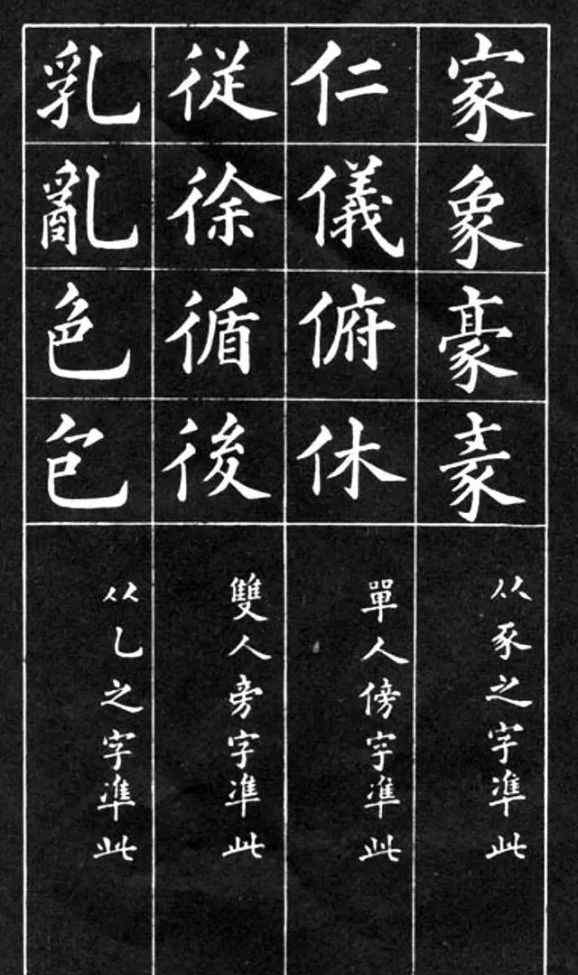 家象豪
从豕之字凖此
仁儀俯休
單人傍字凖此
従徐循後
雙人旁字凖此
乳亂色包
从乚之字凖此